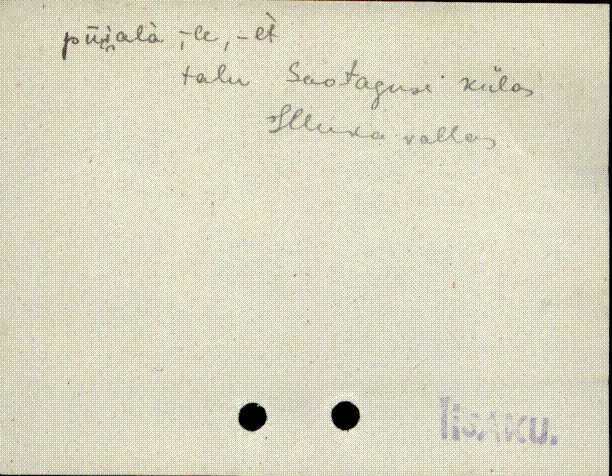 pūi̯alà, -le, -èt
talu Sootaguse külas
Illuka vallas
Iisaku.